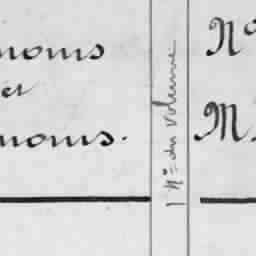 noms
et
noms.
N° du volume
No
M